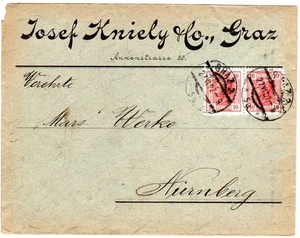 Josef Kniely & Co., Graz
Annenstrasse 20.
Mars Werke
Nürnberg